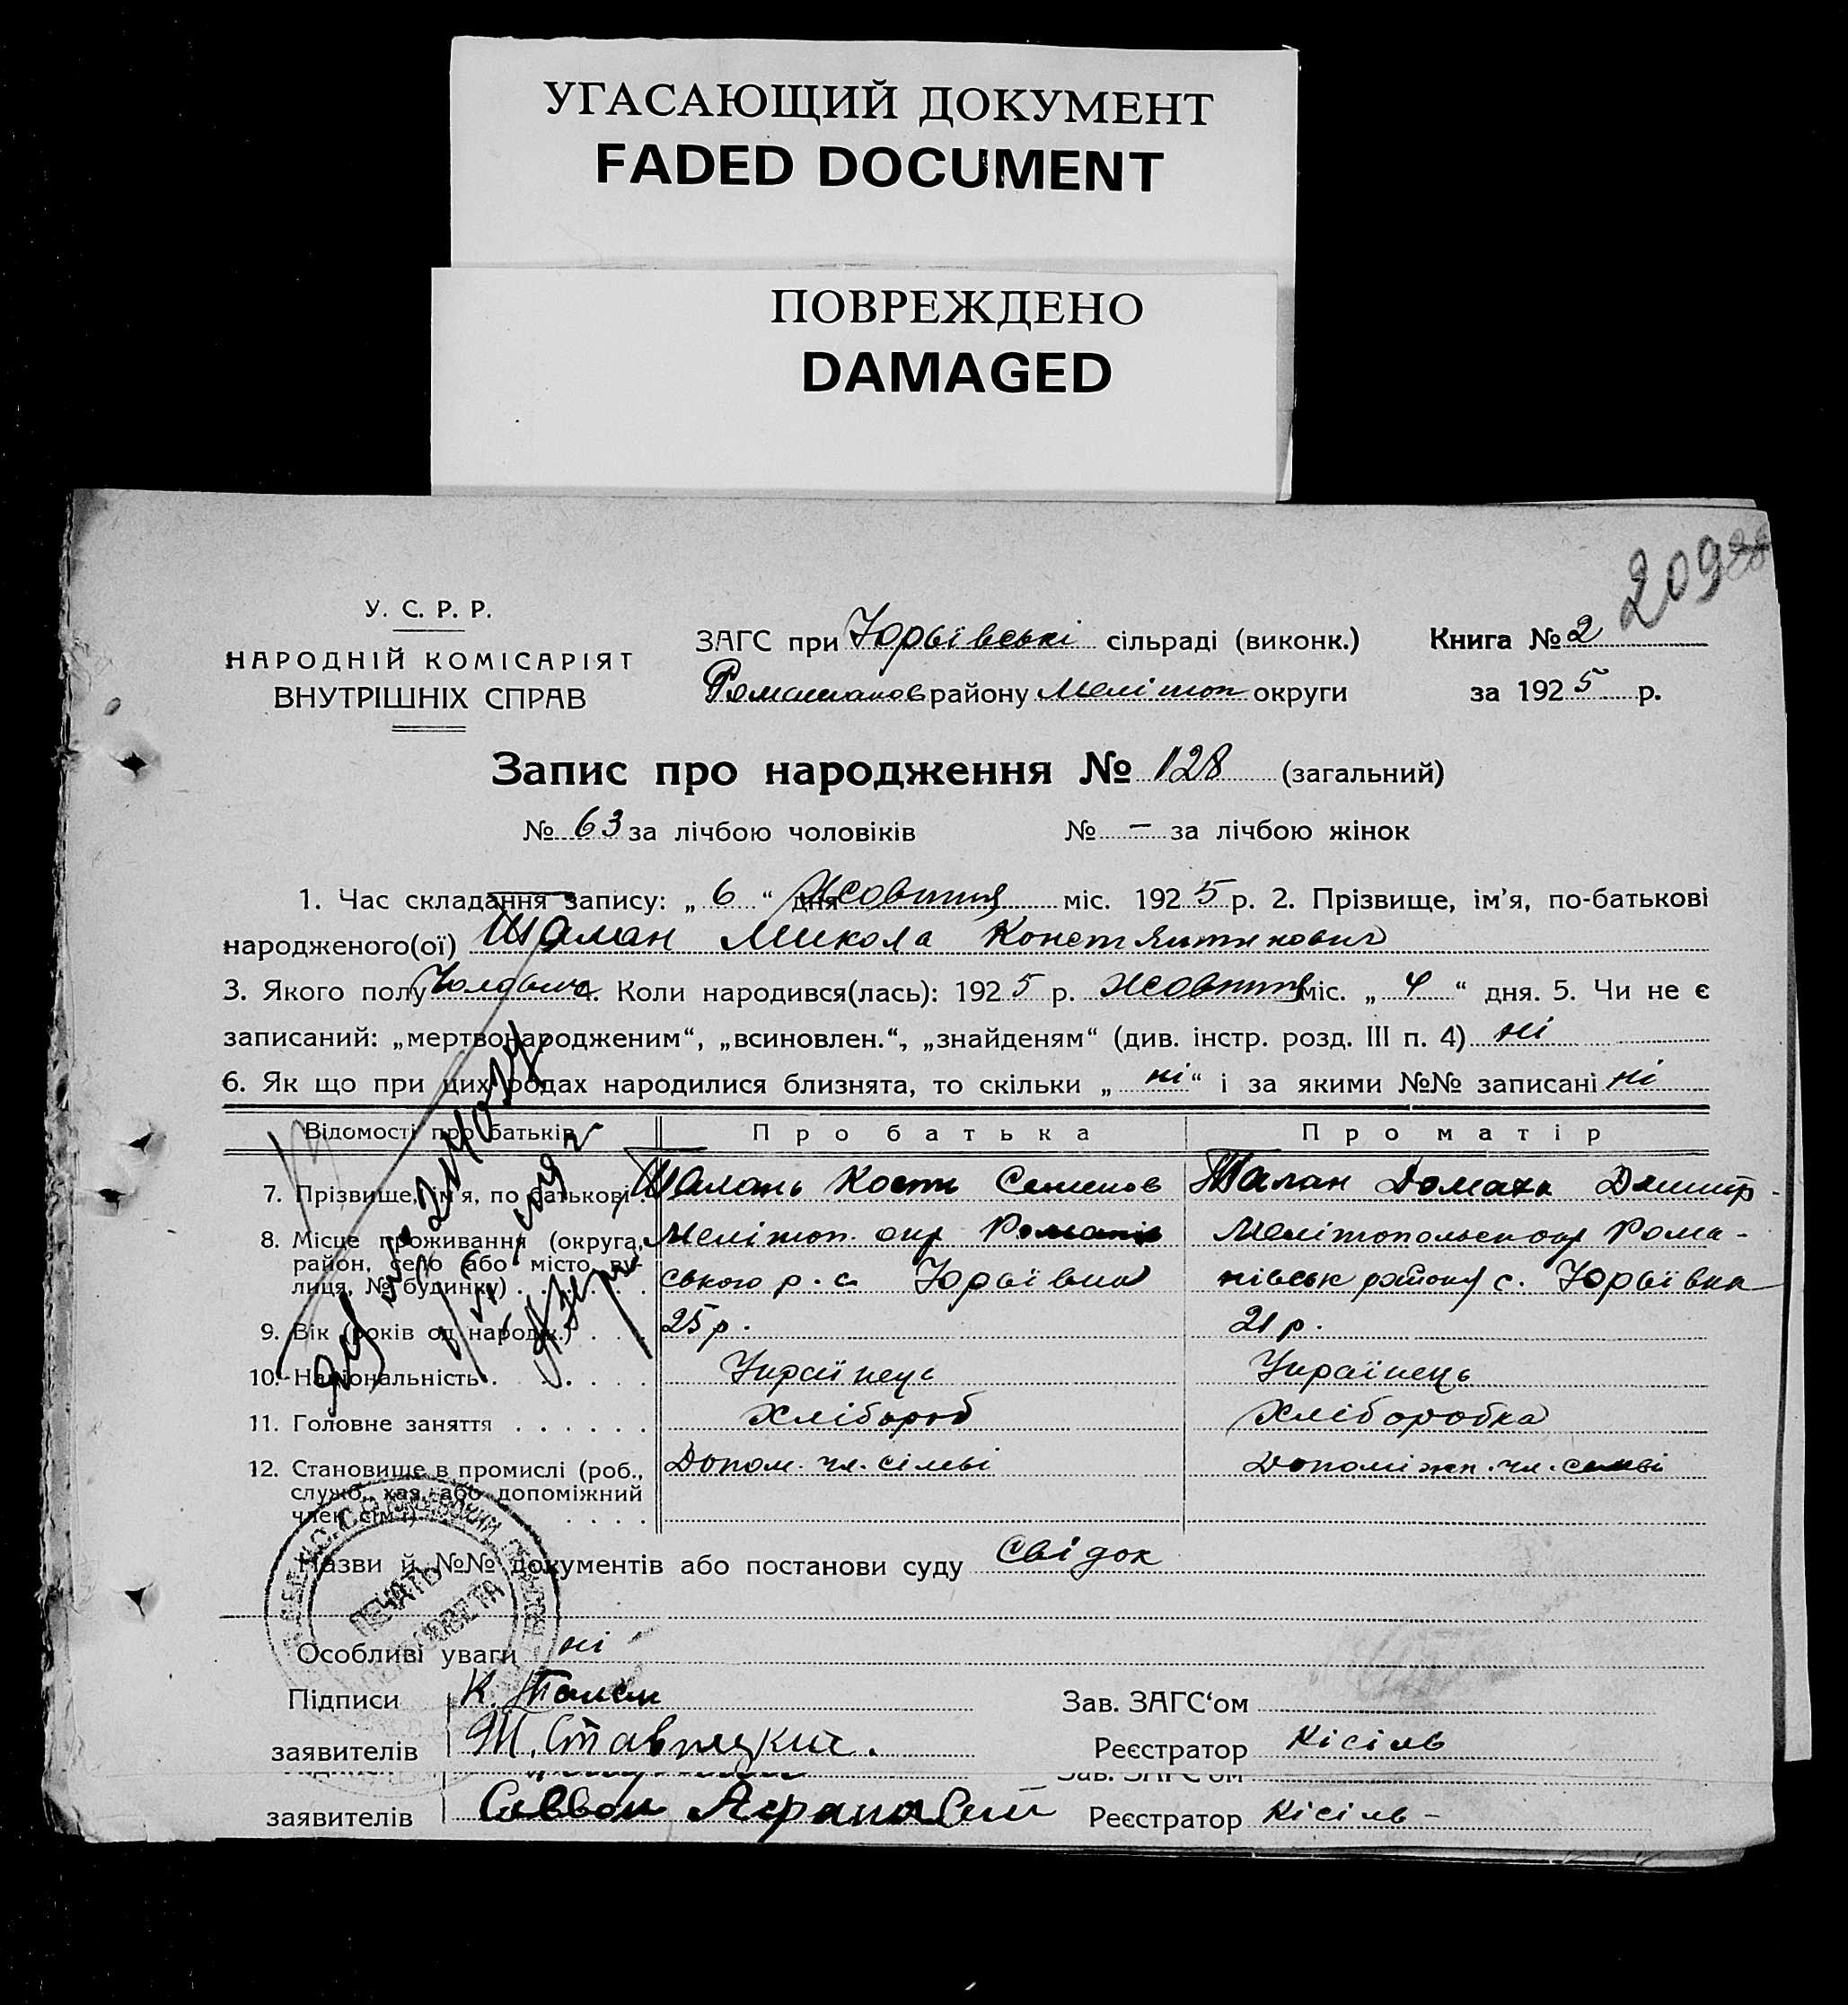 УГАСАЮЩИЙ ДОКУМЕНТ
FADED DOCUMENT
ПОВРЕЖДЕНО
DAMAGED
209
У. С. Р. Р.
НАРОДНІЙ КОМІСАРІЯТ
ВНУТРІШНІХ СПРАВ
ЗАГС при Юрьївські сільраді (виконк.) Книга № 2
району Мелітоп округи за 1925 р.
Запис про народження № 128 (загальний)
№ 63 за лічбою чоловіків № — за лічбою жінок
1. Час складання запису: „ 6 “ дня Жовтня міс. 1925 р. 2. Прізвище, ім’я, по-батькові
народженого(ої) Талан Микола Костянтинович
3. Якого полу 4. Коли народився(лась): 1925 р. Жовтня міс. „ 4 “ дня. 5. Чи не є
записаний: „мертвонародженим“, „всиновлен.“, „знайденям“ (див. інстр. розд. III п. 4) ні
6. Як що при цих родах народилися близнята, то скільки „ ні “ і за якими №№ записані ні
Відомості про батьків Про батька Про матір
7. Прізвище, ім’я, по батькові . Талань Кость Семенов Талан Домаха Дмитр.
8. Місце проживання (округа, Мелітоп. окр Мелітопольск окр Рома-
район, село або місто, ву- ського р. с. Юрьївка нівськ району с. Юрьївка
лиця, № будинку) . . . . . .
9. Вік (років од народж.) . . . 25 р. 21 р.
10. Національність . . . . . . Українець Українець
11. Головне заняття . . . . . . Хлібороб Хлібороб­ка
12. Становище в промислі (роб., Допом. чл. сімьі Допоміжн. чл. семьі
служб., хаз. або допоміжний
член сім’ї) . . . .
Назви й №№ документів або постанови суду Свідок
ПЕЧАТЬ
Особливі уваги ні
Підписи К. Талан Зав. ЗАГС‘ом
заявителів Реєстратор Кісіль
заявителів Реєстратор Кісіль –